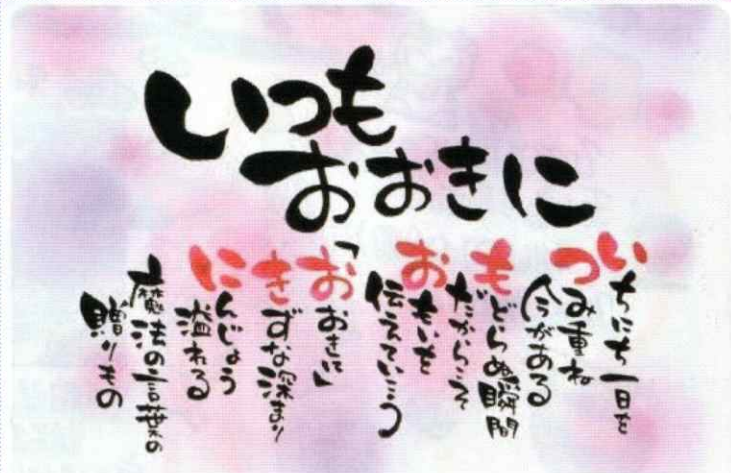 いつも
おおきに
いちにち一日を
つみ重ね
今がある
もどらぬ瞬間
だからこそ
おもいを
伝えていこう
「おおきに」
きずな深まり
にんじょう
溢れる
魔法の言葉の
贈りもの